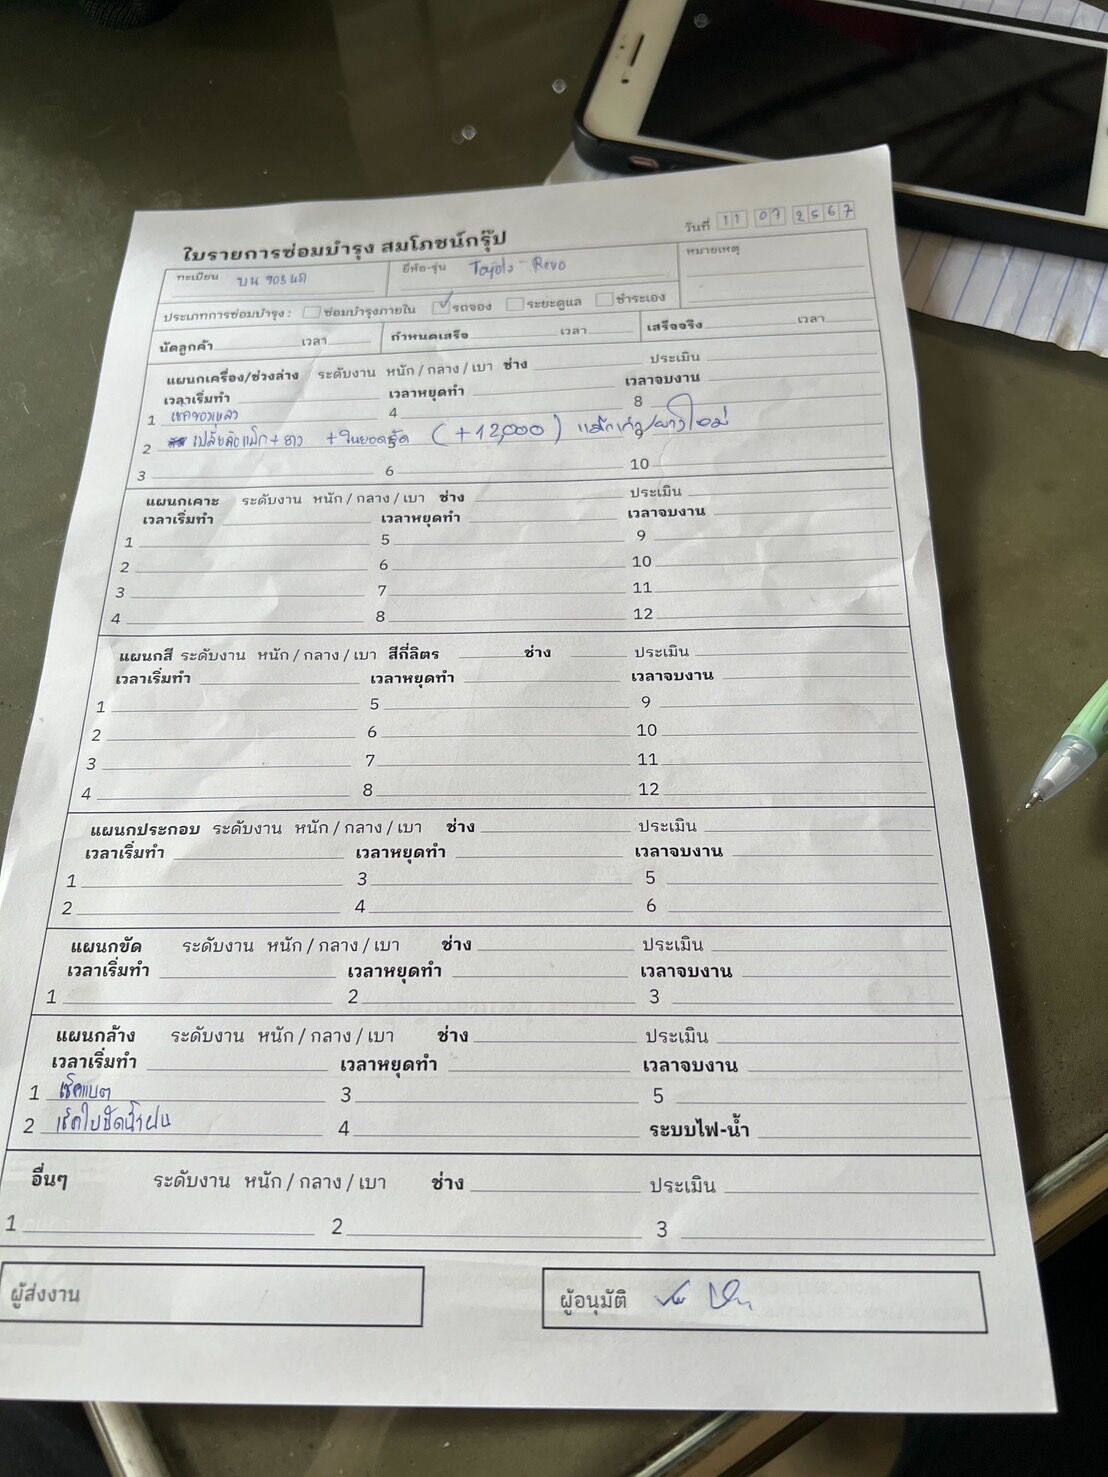 ใบรายการซ่อมบำรุง สมโภชน์กรุ๊ป
วันที่ 11 07 2567
ทะเบียน บน ยี่ห้อ-รุ่น Toyota - Revo หมายเหตุ
ประเภทการซ่อมบำรุง : ซ่อมบำรุงภายใน รถจอง ระยะดูแล ชำระเอง
นัดลูกค้า เวลา กำหนดเสร็จ เวลา เสร็จจริง เวลา
แผนกเครื่อง/ช่วงล่าง ระดับงาน หนัก / กลาง / เบา ช่าง ประเมิน
เวลาเริ่มทำ เวลาหยุดทำ เวลาจบงาน
1 เช็คของเหลว 4 8
2 + ยาง (+12,000)
3 6 10
แผนกเคาะ ระดับงาน หนัก / กลาง / เบา ช่าง ประเมิน
เวลาเริ่มทำ เวลาหยุดทำ เวลาจบงาน
1 5 9
2 6 10
3 7 11
4 8 12
แผนกสี ระดับงาน หนัก / กลาง / เบา สีกี่ลิตร ช่าง ประเมิน
เวลาเริ่มทำ เวลาหยุดทำ เวลาจบงาน
1 5 9
2 6 10
3 7 11
4 8 12
แผนกประกอบ ระดับงาน หนัก / กลาง / เบา ช่าง ประเมิน
เวลาเริ่มทำ เวลาหยุดทำ เวลาจบงาน
1 3 5
2 4 6
แผนกขัด ระดับงาน หนัก / กลาง / เบา ช่าง ประเมิน
เวลาเริ่มทำ เวลาหยุดทำ เวลาจบงาน
1 2 3
แผนกล้าง ระดับงาน หนัก / กลาง / เบา ช่าง ประเมิน
เวลาเริ่มทำ เวลาหยุดทำ เวลาจบงาน
1 เช็คแบต 3 5
2 เช็คใบปัดน้ำฝน 4 ระบบไฟ-น้ำ
อื่นๆ ระดับงาน หนัก / กลาง / เบา ช่าง ประเมิน
1 2 3
ผู้ส่งงาน ผู้อนุมัติ